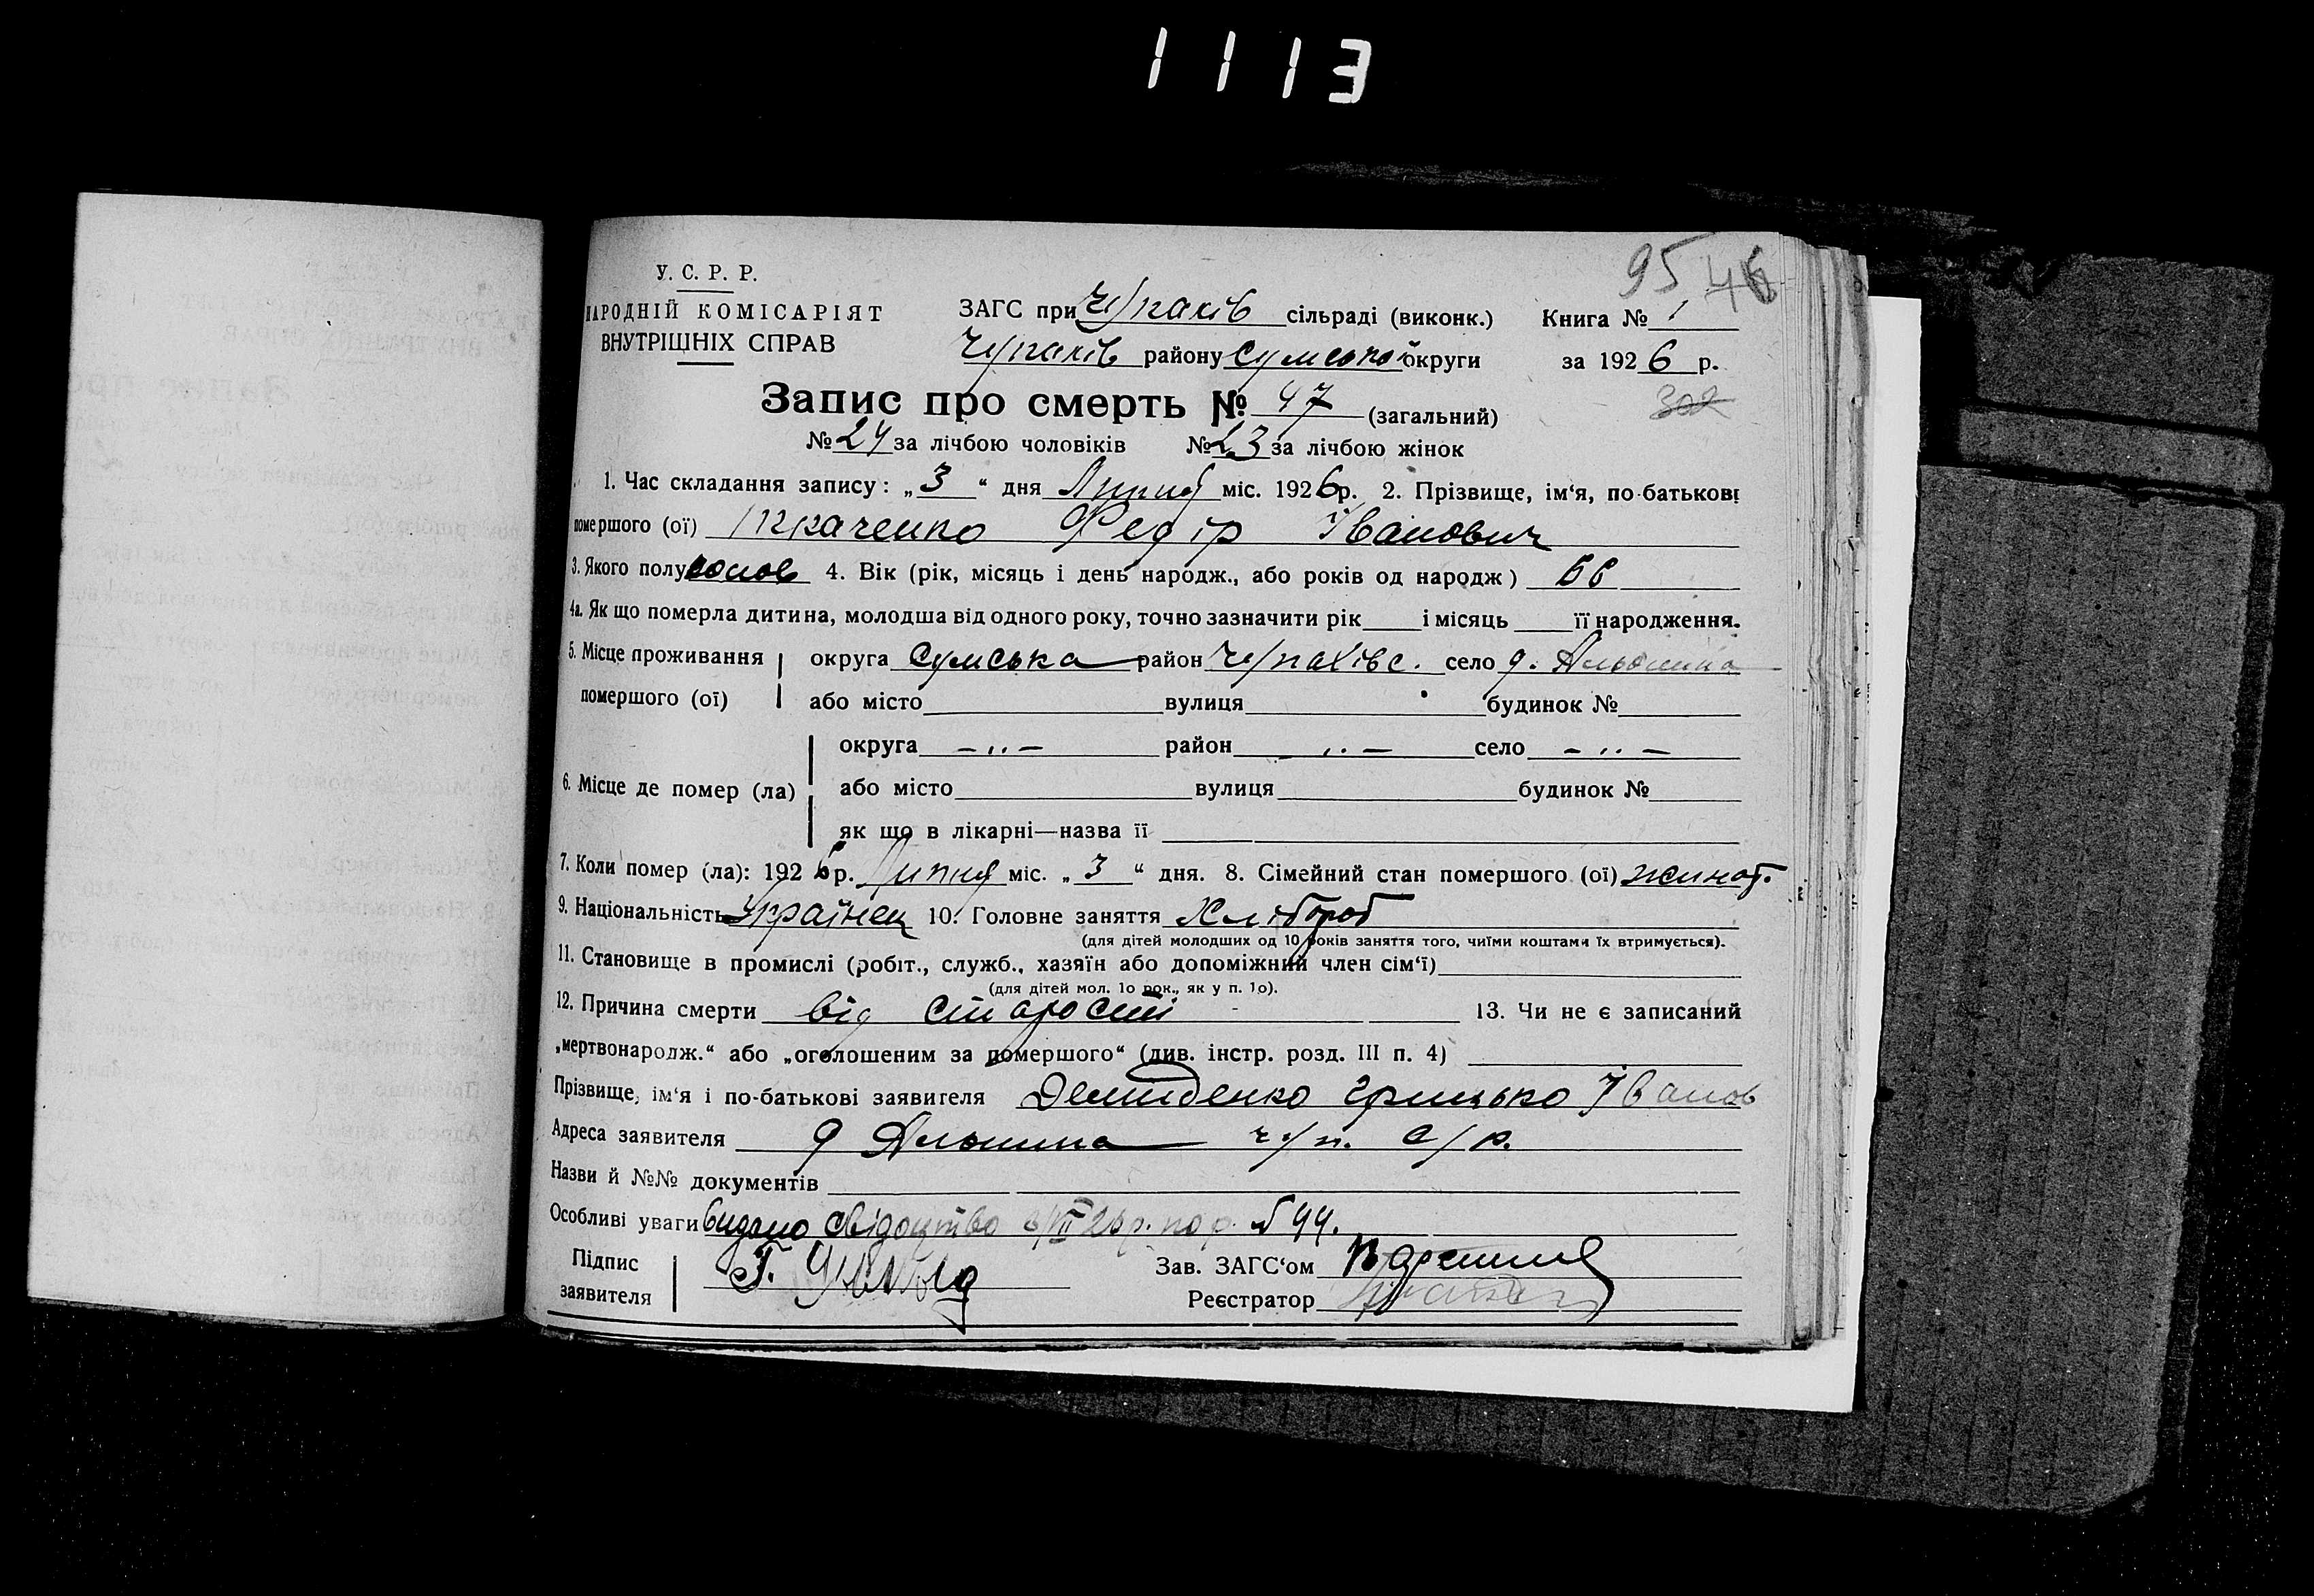 1113
95 46
У. С. Р. Р.
НАРОДНІЙ КОМІСАРІЯТ
ВНУТРІШНІХ СПРАВ
ЗАГС при Чупахів сільраді (виконк.) Книга № 1
Чупахів району Сумської округи за 1926 р.
Запис про смерть № 47 (загальний)
302
№ 24 за лічбою чоловіків № 23 за лічбою жінок
1. Час складання запису: „3“ дня Липня міс. 1926р. 2. Прізвище, ім'я, по-батькові
помершого (ої) Ткаченко Федір Іванович
3. Якого полу 4. Вік (рік, місяць і день народж., або років од народж) 66
4а. Як що померла дитина, молодша від одного року, точно зазначити рік і місяць її народження.
5. Місце проживання округа Сумська район Чупахівс. село д. Альошина
помершого (ої) або місто вулиця будинок №
округа -„- район „- село -„-
6. Місце де помер (ла) або місто вулиця будинок №
як що в лікарні—назва її
7. Коли помер (ла): 1926р. Липня міс. „3“ дня. 8. Сімейний стан помершого (ої) жинат.
9. Національність Українец 10. Головне заняття Хлібороб
(для дітей молодших од 10 років заняття того, чиїми коштами їх втримується).
11. Становище в промислі (робіт., служб., хазяїн або допоміжний член сім'ї)
(для дітей мол. 1о рок., як у п. 1о).
12. Причина смерти від старости 13. Чи не є записаний
„мертвонародж.“ або „оголошеним за помершого“ (див. інстр. розд. III п. 4)
Прізвище, ім'я і по-батькові заявителя Демиденко Грицько Іванов
Адреса заявителя д Альошина чуп. с/р.
Назви й №№ документів
Особливі уваги Видано свідоцтво 3/VII 26р. по р. № 44.
Підпис Зав. ЗАГС'ом
заявителя Реєстратор